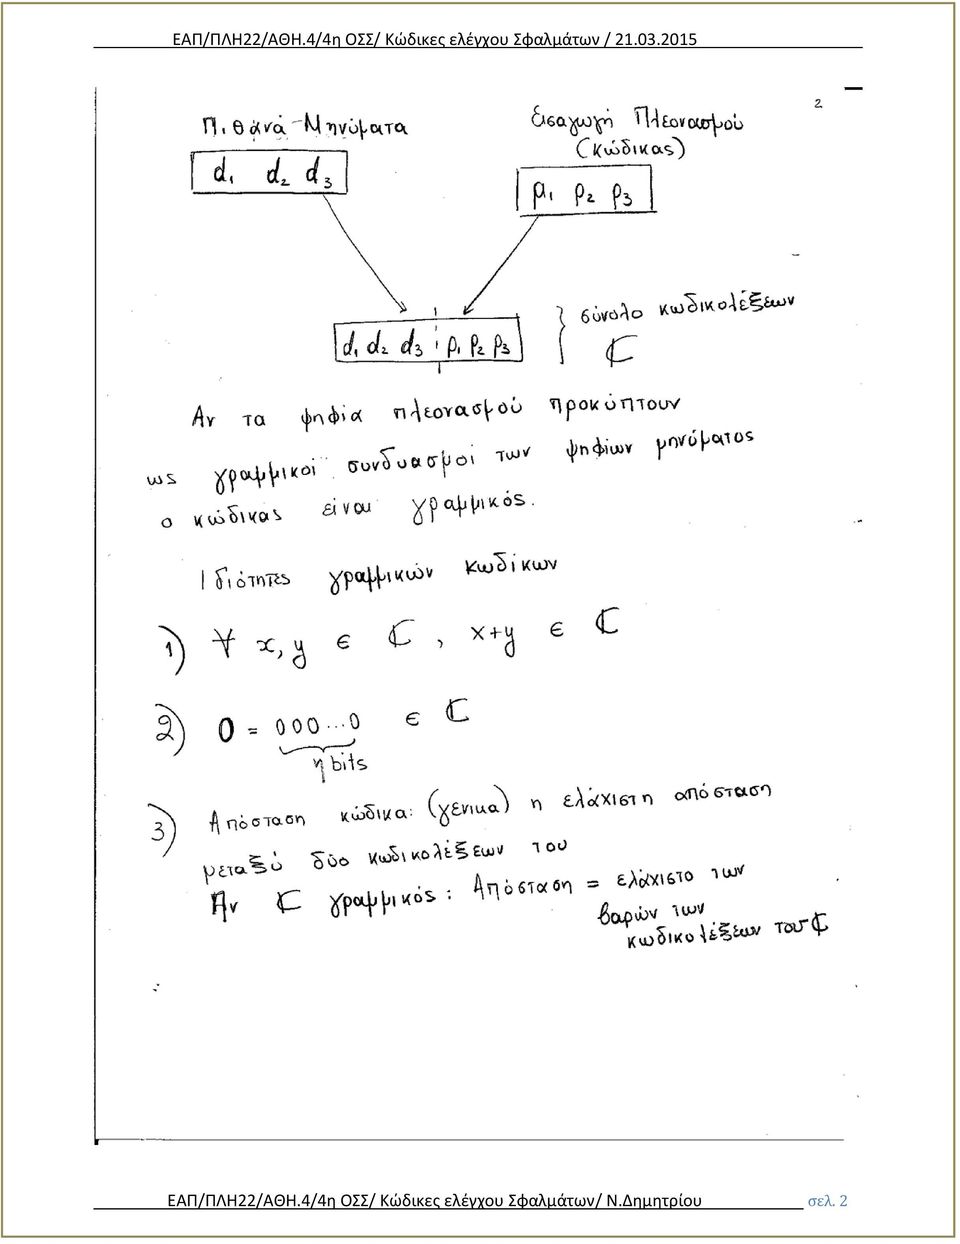 ΕΑΠ/ΠΛΗ22/ΑΘΗ.4/4η ΟΣΣ/ Κώδικες ελέγχου Σφαλμάτων / 21.03.2015
2
Πιθανά Μηνύματα
Εισαγωγή Πλεονασμού
(Κώδικας)
d₁ d₂ d₃
p₁ p₂ p₃
d₁ d₂ d₃ p₁ p₂ p₃
} σύνολο κωδικολέξεων
ℂ
Αν τα ψηφία πλεονασμού προκύπτουν
ως γραμμικοί συνδυασμοί των ψηφίων μηνύματος
ο κώδικας είναι γραμμικός.
Ιδιότητες γραμμικών κωδίκων
1) ∀ x, y ∈ ℂ, x+y ∈ ℂ
2) 0 = 000...0 ∈ ℂ
η bits
3) Απόσταση κώδικα: (γενικα) η ελάχιστη απόσταση
μεταξύ δύο κωδικολέξεων του
Αν ℂ γραμμικός: Απόσταση = ελάχιστο των
βαρών των
κωδικολέξεων του ℂ
ΕΑΠ/ΠΛΗ22/ΑΘΗ.4/4η ΟΣΣ/ Κώδικες ελέγχου Σφαλμάτων/ Ν.Δημητρίου σελ. 2